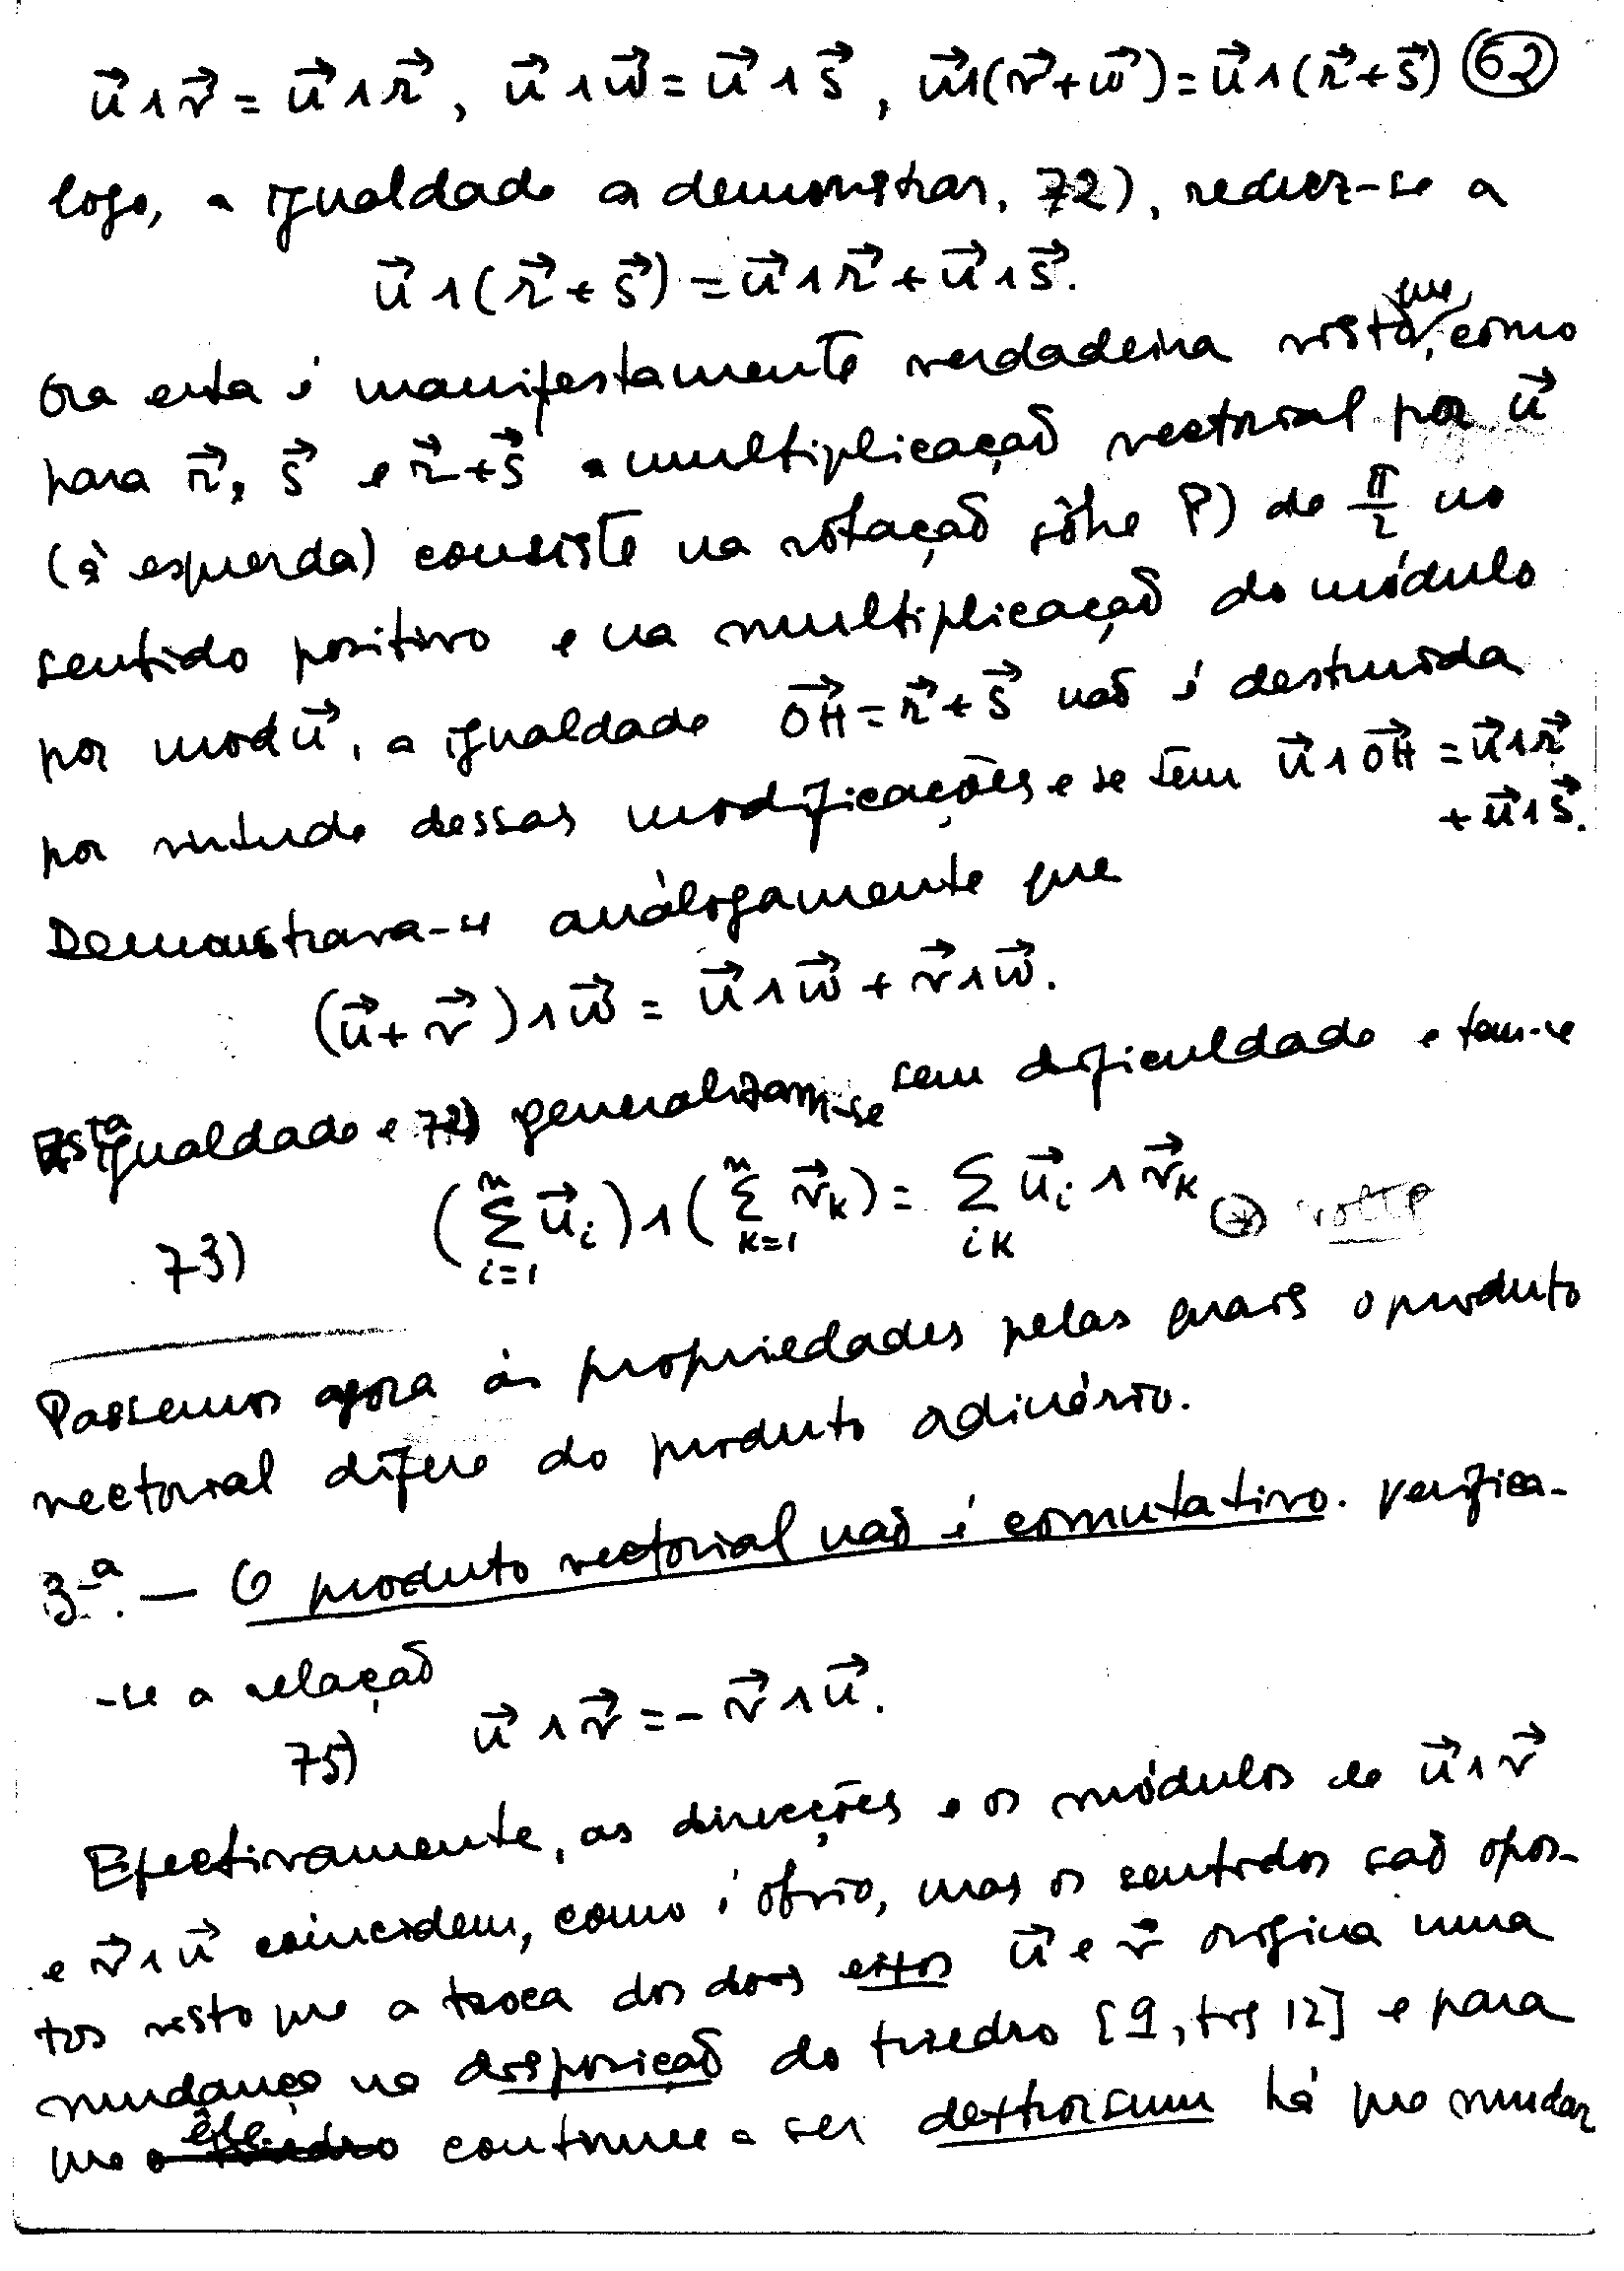 u⃗ ∧ v⃗ = u⃗ ∧ r⃗, u⃗ ∧ w⃗ = u⃗ ∧ s⃗, u⃗∧(v⃗+w⃗) = u⃗∧(r⃗+s⃗) 62
logo, a igualdade a demonstrar, 72), reduz-se a
u⃗ ∧ (r⃗ + s⃗) = u⃗ ∧ r⃗ + u⃗ ∧ s⃗.
Ora esta é manifestamente verdadeira visto que, como
para r⃗, s⃗ e r⃗+s⃗ a multiplicação vectorial por u⃗
(à esquerda) consiste na rotação sôbre P) de π/2 no
sentido positivo e na multiplicação do módulo
por mod u⃗, a igualdade OH⃗ = r⃗ + s⃗ não é destruída
por virtude dessas modificações e se tem u⃗ ∧ OH⃗ = u⃗∧r⃗
+ u⃗∧s⃗.
Demonstrara-se anàlogamente que
(u⃗+v⃗)∧w⃗ = u⃗∧w⃗ + v⃗∧w⃗.
Esta igualdade e 72) generalizam-se sem dificuldade e tem-se
73) (∑ⁿᵢ₌₁ u⃗ᵢ)∧(∑ⁿₖ₌₁ v⃗ₖ) = ∑ᵢₖ u⃗ᵢ ∧ v⃗ₖ
Passemos agora às propriedades pelas quais o produto
vectorial difere do produto ordinário.
3ª. — O produto vectorial não é comutativo. Verifica-
-se a relação
75) u⃗ ∧ v⃗ = - v⃗ ∧ u⃗.
Efectivamente, as direcções e os módulos de u⃗∧v⃗
e v⃗∧u⃗ coincidem, como é óbvio, mas os sentidos são opos-
tos visto que a troca dos dois eixos u⃗ e v⃗ origina uma
mudança na disposição do triedro [9, fig 12] e para
que êle continue a ser dextrorsum há que mudar